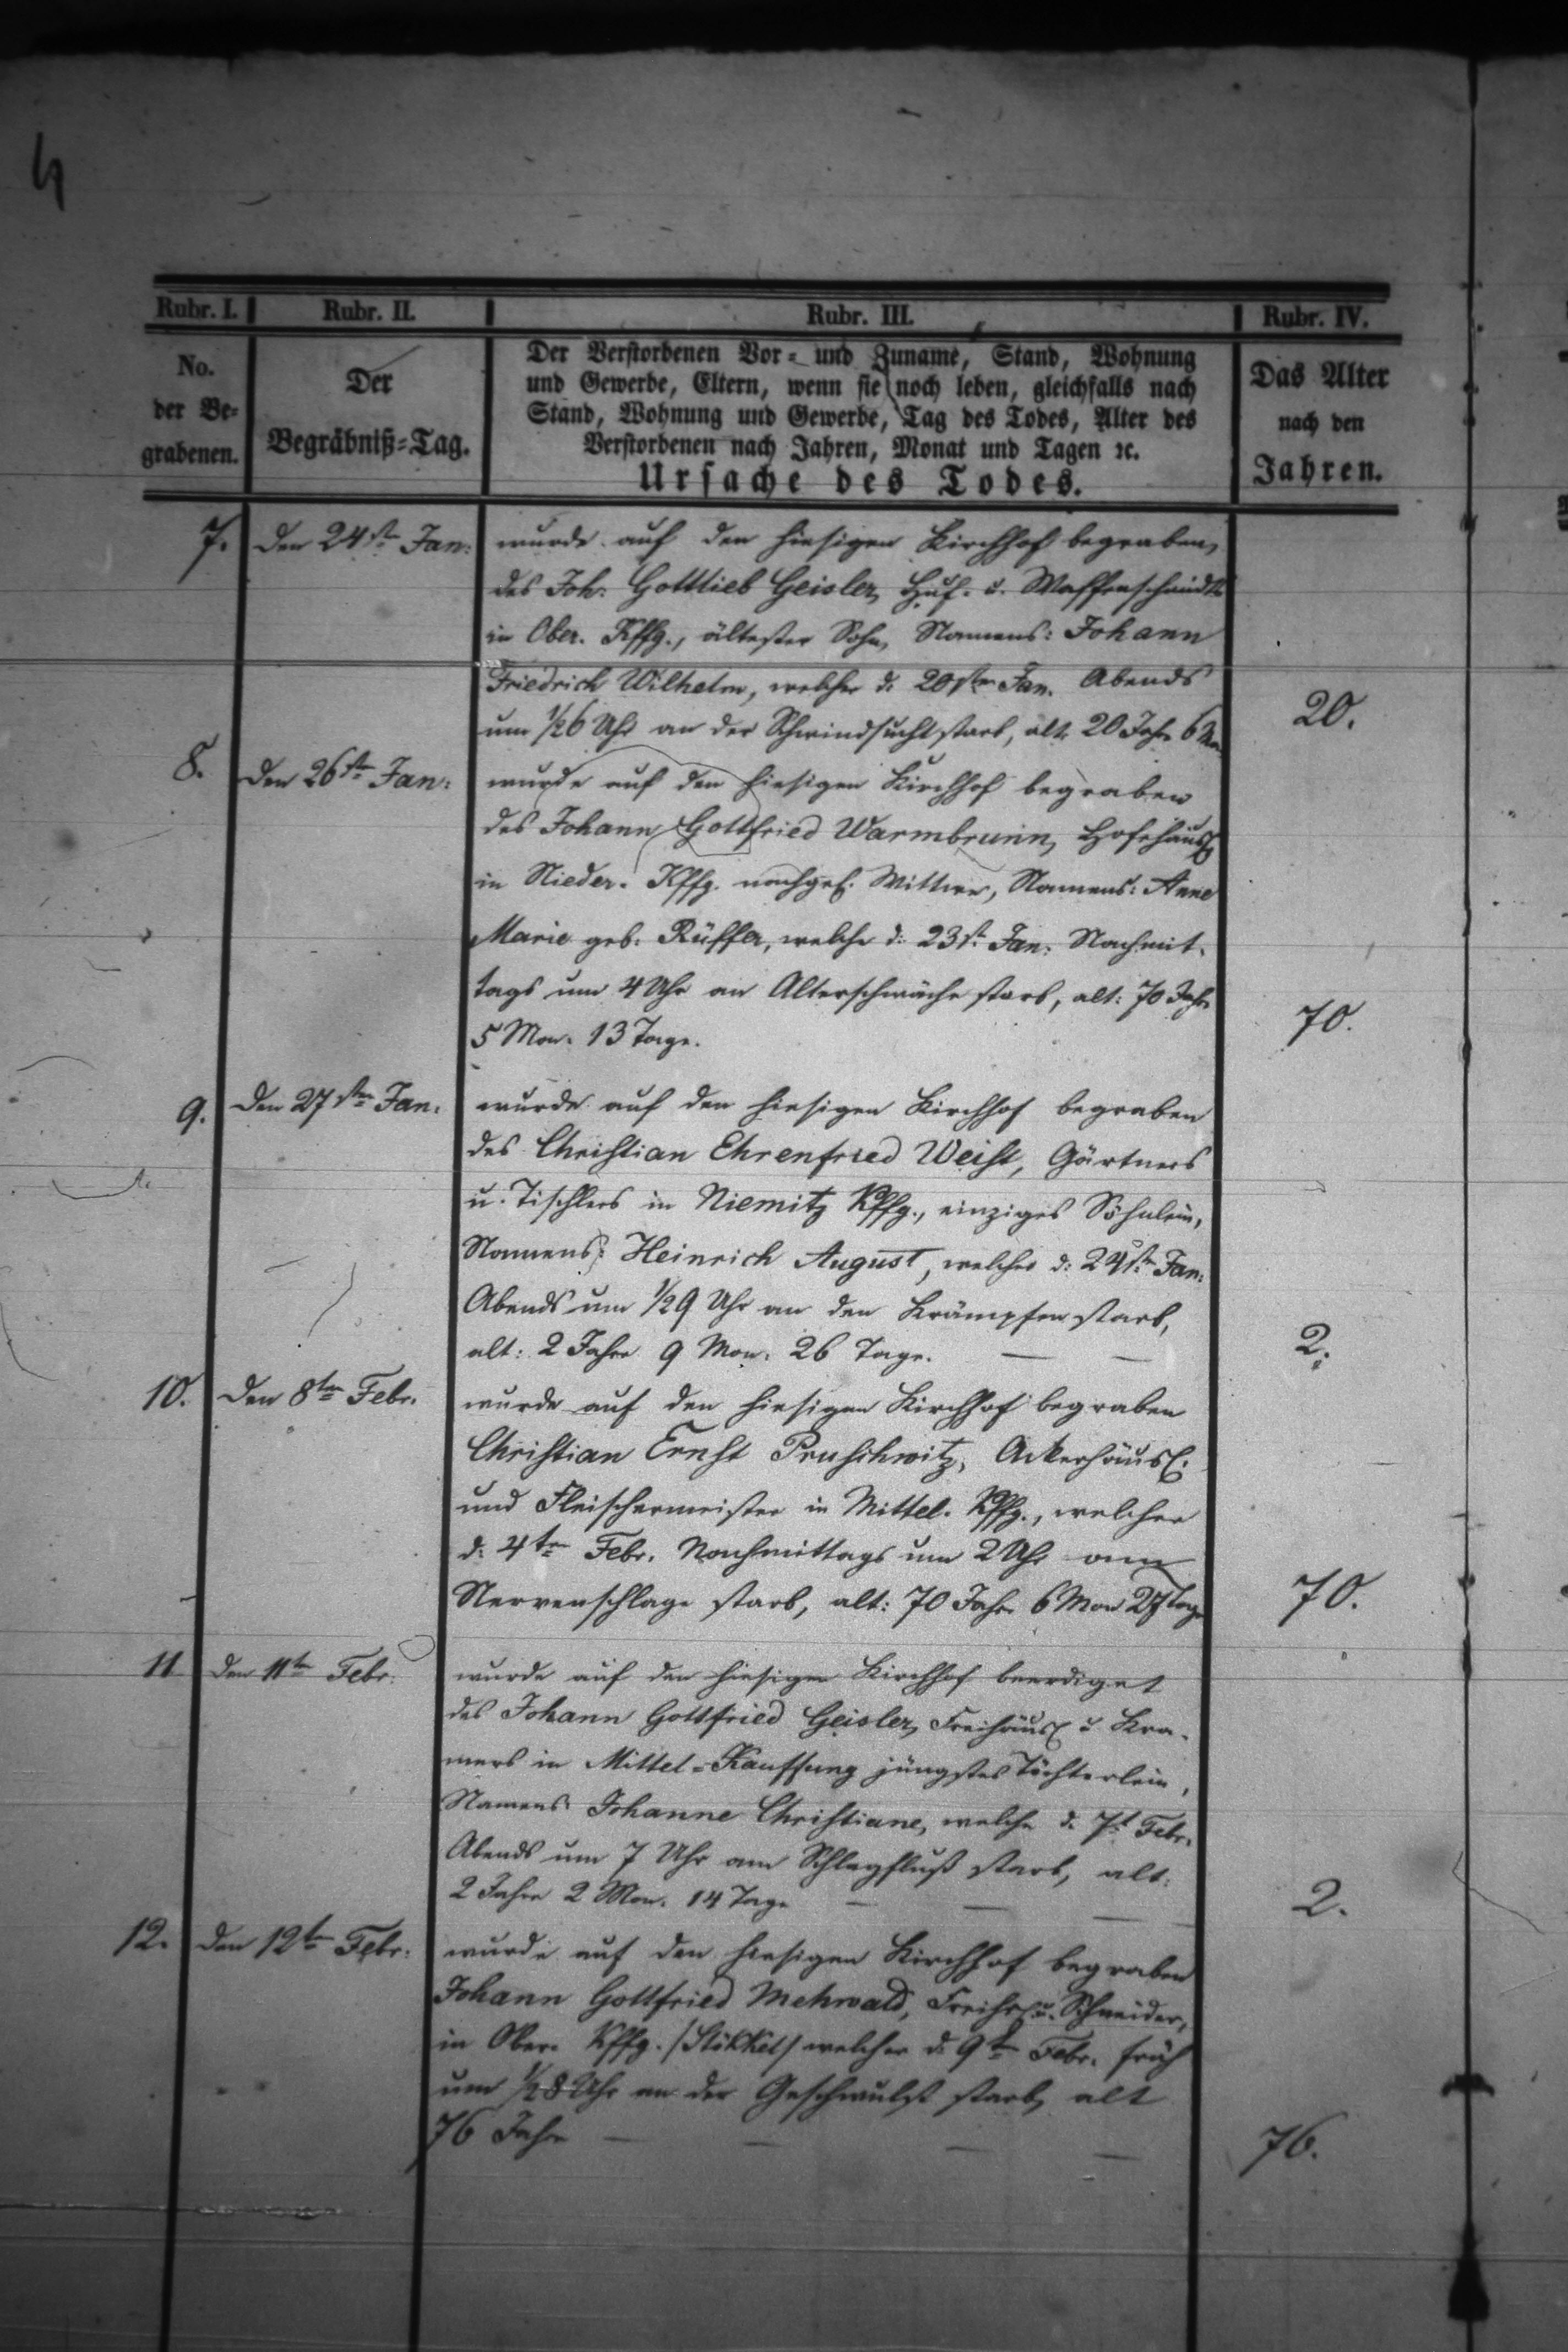 4
Rubr. I. Rubr. II. Rubr. III. Rubr. IV.
No. der Be=grabenen.
Der Begräbniß=Tag.
Der Verstorbenen Vor= und Zuname, Stand, Wohnung
und Gewerbe, Eltern, wenn sie noch leben, gleichfalls nach
Stand, Wohnung und Gewerbe, Tag des Todes, Alter des
Verstorbenen nach Jahren, Monat und Tagen ꝛc.
Ursache des Todes.
Das Alter nach den Jahren.
7. Den 24st Jan: wurde auf den hiesigen Kirchhof begraben,
des Joh: Gottlieb Geisler, Huf- u. Waffenschmidts
in Ober-Kffg., ältester Sohn, Namens: Johann
Friedrich Wilhelm, welcher d: 20sten Jan. Abends
um ½6 Uhr an der Schwindsucht starb, alt: 20 Jahr 6 Mon. 20.
8. Den 26st Jan: wurde auf den hiesigen Kirchhof begraben
des Johann Gottfried Warmbrunn, Hofehäusl.
in Nieder-Kffg. nachgel. Wittwe, Namens: Anne
Marie geb: Rüffer, welche d: 23st Jan: Nachmit-
tags um 4 Uhr an Alterschwäche starb, alt: 70 Jahr
5 Mon. 13 Tage. 70.
9. Den 27sten Jan: wurde auf den hiesigen Kirchhof begraben
des Christian Ehrenfried Weist, Gärtners
u. Tischlers in Niemitz Kffg., einziges Söhnlein,
Namens: Heinrich August, welches d: 24st Jan:
Abends um ½9 Uhr an den Krämpfen starb,
alt: 2 Jahre 9 Mon. 26 Tage. — — 2.
10. Den 8ten Febr. wurde auf den hiesigen Kirchhof begraben
Christian Ernst Pruschwitz, Ackerhäusl.
und Fleischermeister in Mittel-Kffg., welcher
d: 4ten Febr. Nachmittags um 2 Uhr am
Nervenschlage starb, alt: 70 Jahr 6 Mon 27 Tage 70.
11 Den 11ten Febr. wurde auf den hiesigen Kirchhof beerdiget
des Johann Gottfried Geisler, Freihäusl. u. Kra-
mers in Mittel=Kauffung jüngstes Töchterlein,
Namens: Johanne Christiane, welche d. 7t Febr.
Abends um 7 Uhr am Schlagfluß starb, alt:
2 Jahre 2 Mon. 14 Tage — — — 2.
12. Den 12ten Febr: wurde auf den hiesigen Kirchhof begraben
Johann Gottfried Mehwald, Freihsl. u. Schneider,
in Ober-Kffg. /Stökkel/ welcher d: 9ten Febr. früh
um ½8 Uhr an der Geschwulst starb, alt
76 Jahr — — — — 76.